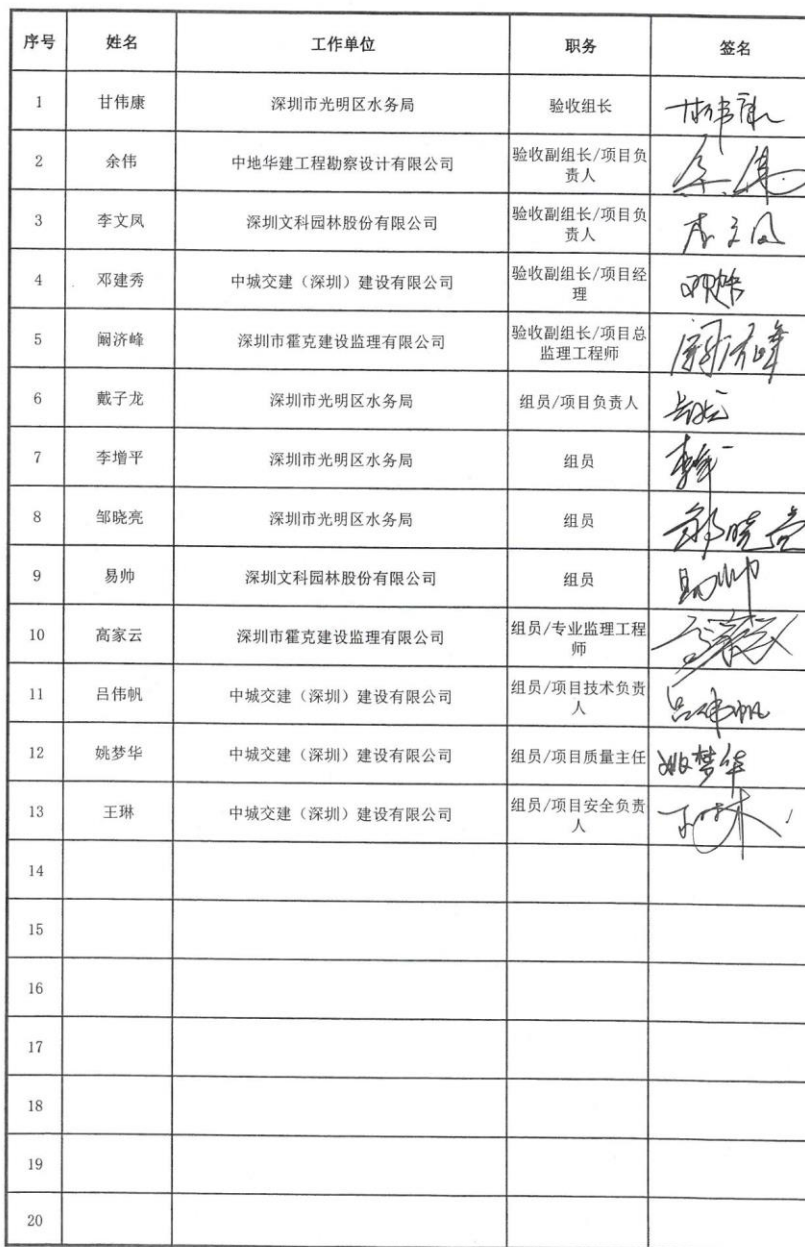 序号 姓名 工作单位 职务 签名
1 甘伟康 深圳市光明区水务局 验收组长 甘伟康
2 余伟 中地华建工程勘察设计有限公司 验收副组长/项目负
责人 余伟
3 李文凤 深圳文科园林股份有限公司 验收副组长/项目负
责人 李文凤
4 邓建秀 中城交建（深圳）建设有限公司 验收副组长/项目经
理
5 阚济峰 深圳市霍克建设监理有限公司 验收副组长/项目总
监理工程师
6 戴子龙 深圳市光明区水务局 组员/项目负责人
7 李增平 深圳市光明区水务局 组员
8 邹晓亮 深圳市光明区水务局 组员 邹晓亮
9 易帅 深圳文科园林股份有限公司 组员 易帅
10 高家云 深圳市霍克建设监理有限公司 组员/专业监理工程
师
11 吕伟帆 中城交建（深圳）建设有限公司 组员/项目技术负责
人 吕伟帆
12 姚梦华 中城交建（深圳）建设有限公司 组员/项目质量主任 姚梦华
13 王琳 中城交建（深圳）建设有限公司 组员/项目安全负责
人 王琳
14
15
16
17
18
19
20